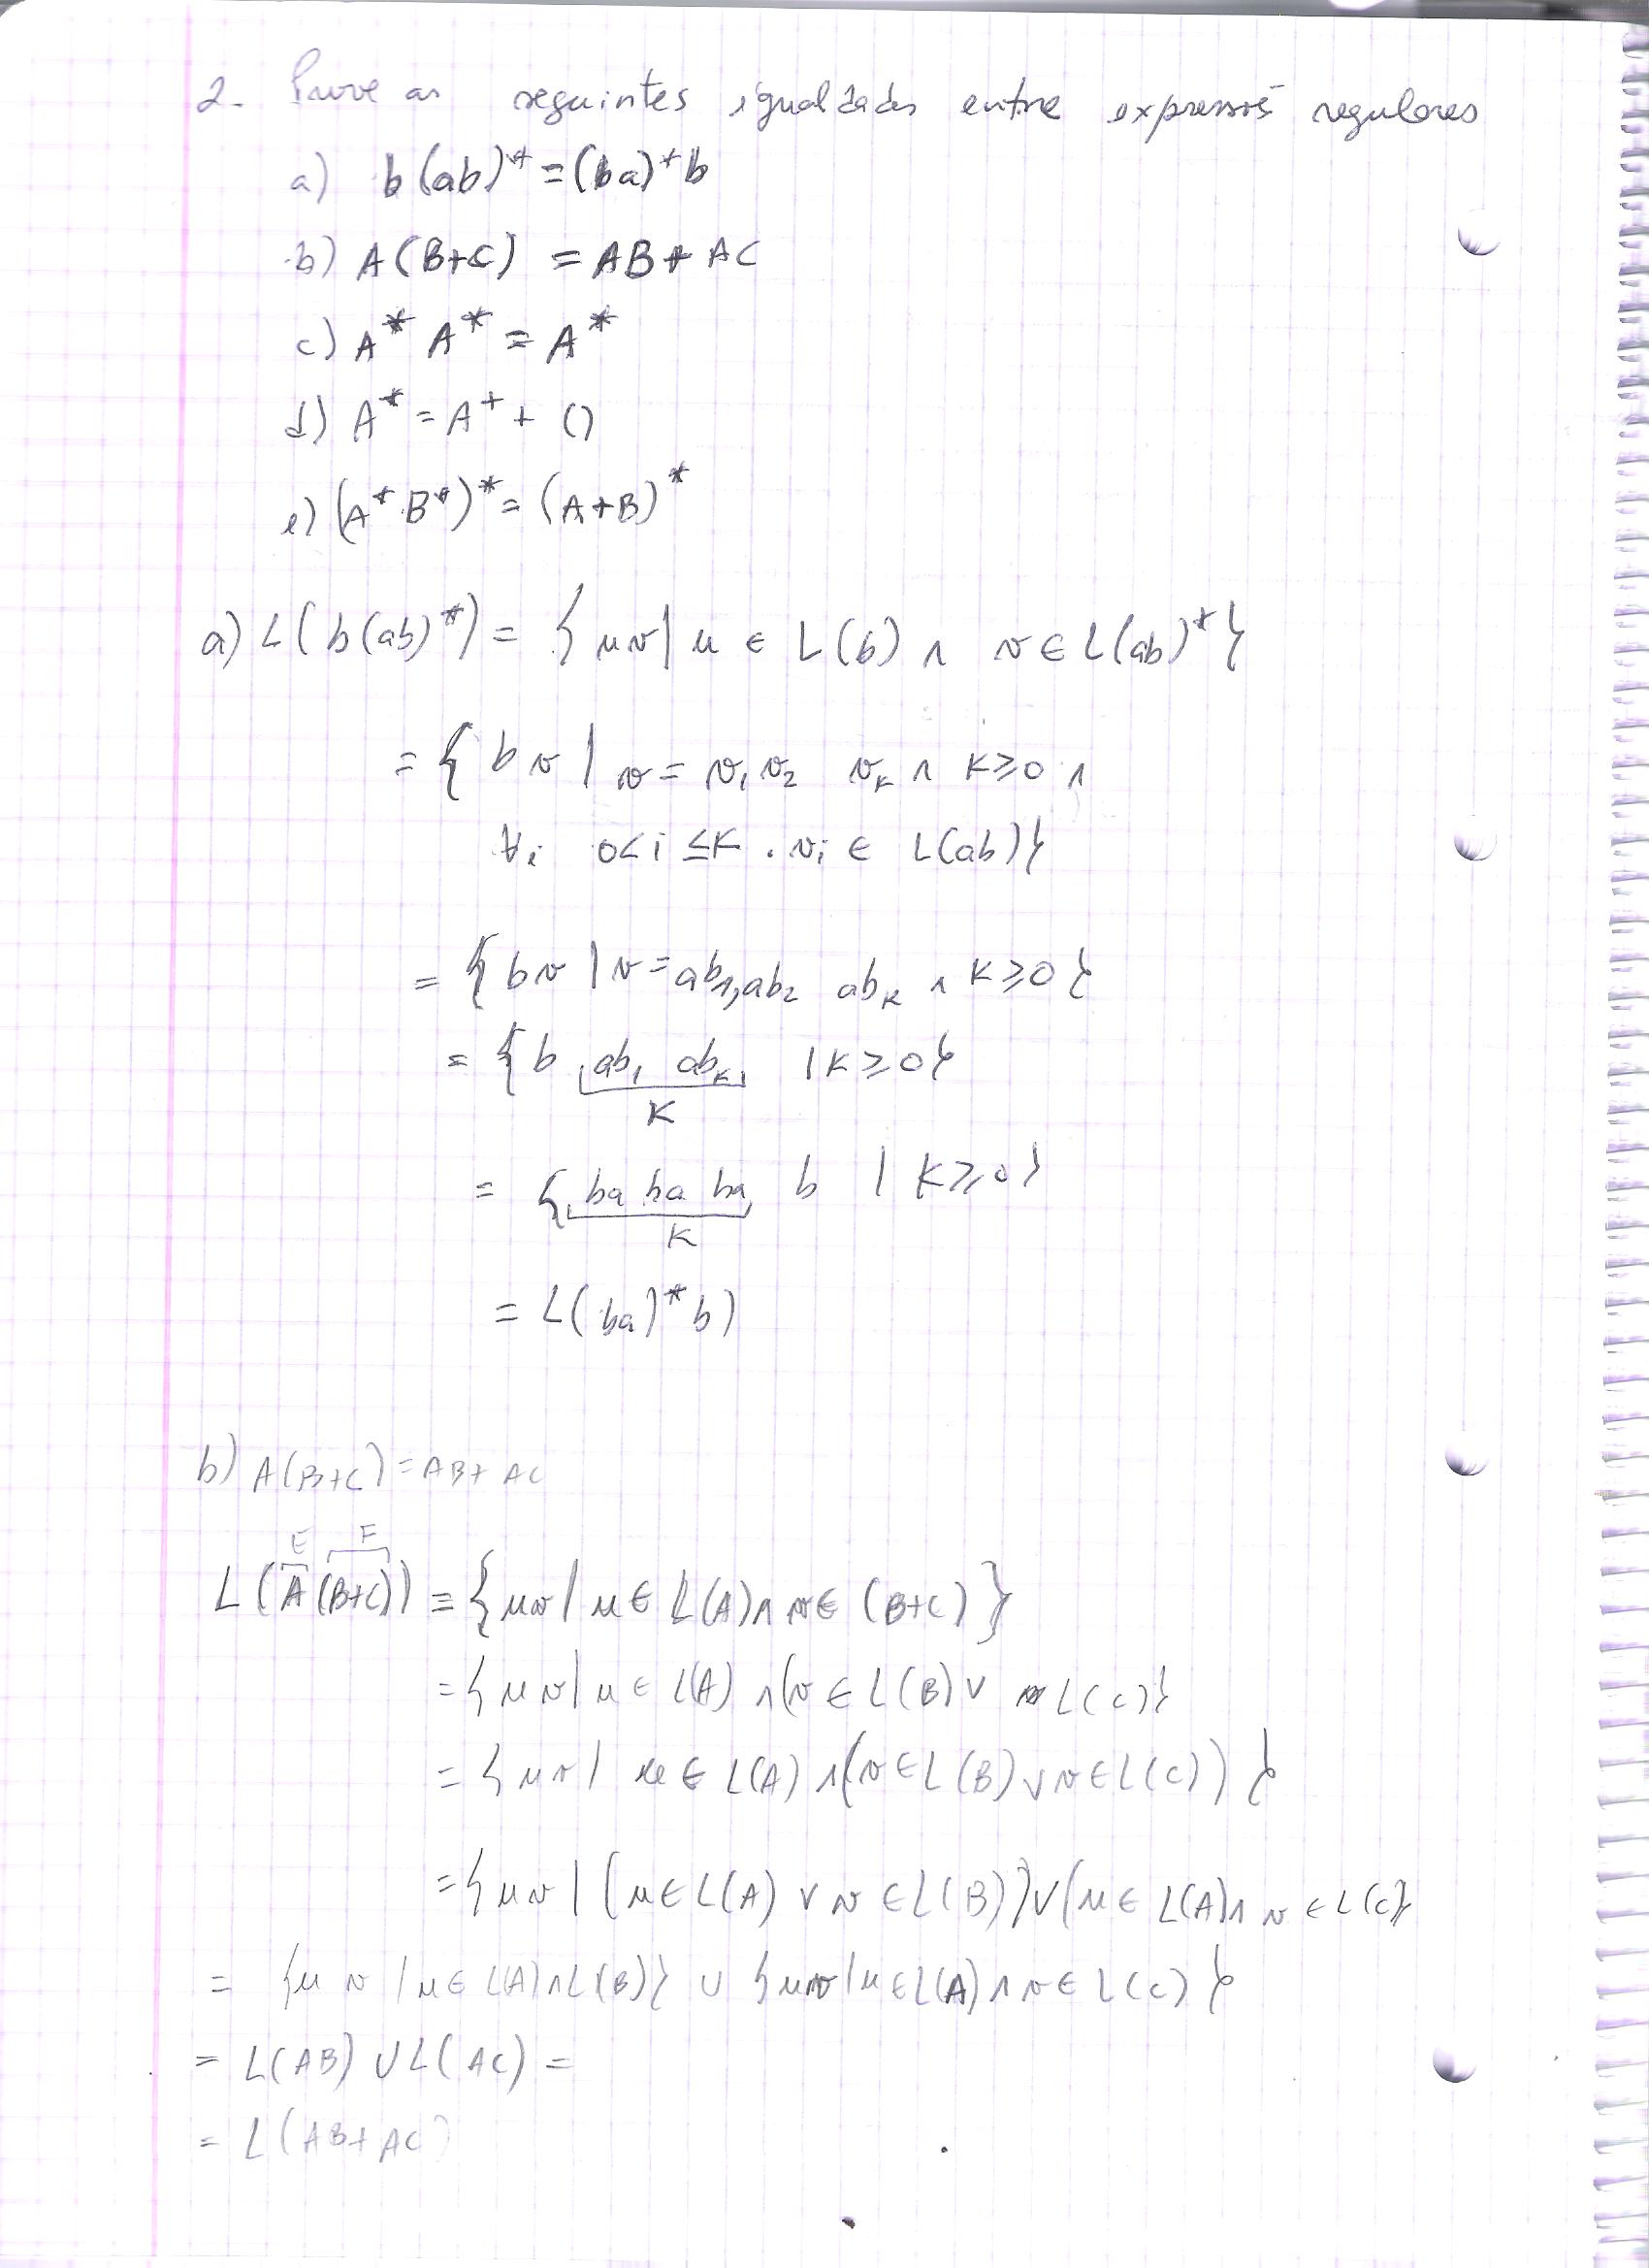 2. Prove as seguintes igualdades entre expressões regulares
a) b(ab)* = (ba)*b
b) A(B+C) = AB + AC
c) A* A* = A*
d) A* = A⁺ + ()
e) (A* B*)* = (A+B)*
a) L(b(ab)*) = { uv | u ∈ L(b) ∧ v ∈ L(ab)* }
= { b v | v = v₁ v₂ vₖ ∧ K ≥ 0 ∧
∀i 0 < i ≤ K . vᵢ ∈ L(ab) }
= { b v | v = ab₁, ab₂ abₖ ∧ K ≥ 0 }
= { b ab₁ abₖ | K ≥ 0 }
K
= { ba ba ba b | K ≥ 0 }
K
= L(ba)* b)
b) A(B+C) = AB + AC
E F
L(A(B+C)) = { uv | u ∈ L(A) ∧ v ∈ (B+C) }
= { uv | u ∈ L(A) ∧ (v ∈ L(B) ∨ L(C) }
= { uv | u ∈ L(A) ∧ (v ∈ L(B) ∨ v ∈ L(C)) }
= { uv | (u ∈ L(A) ∨ v ∈ L(B)) ∨ (u ∈ L(A) ∧ v ∈ L(C) }
= { u v | u ∈ L(A) ∧ L(B) } ∪ { uv | u ∈ L(A) ∧ v ∈ L(C) }
= L(AB) ∪ L(AC) =
= L(AB + AC)